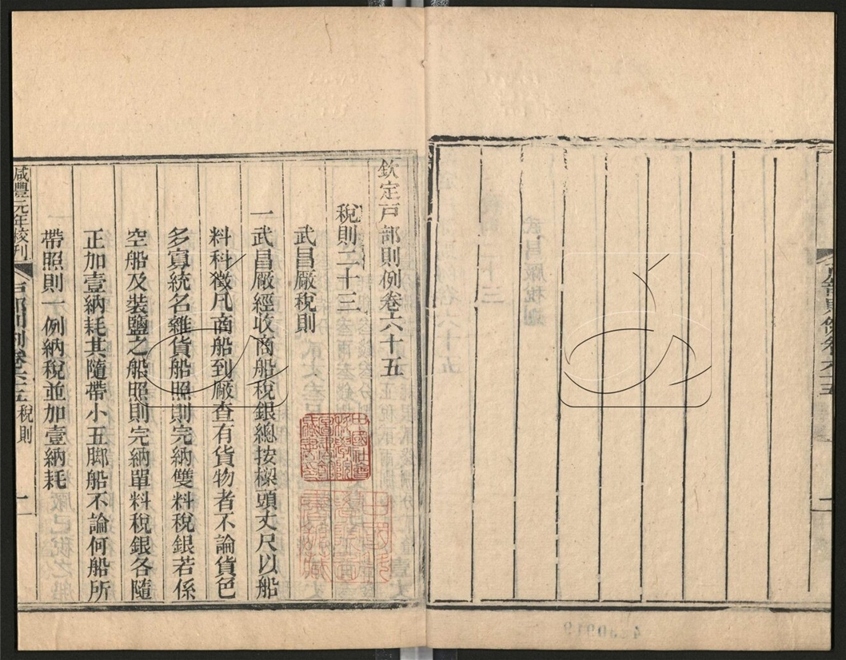 欽定戸部則例卷六十五
稅則二十三
武昌厰稅則
一武昌厰經收商船稅銀總按樑頭丈尺以船
料科徵凡商船到厰查有貨物者不論貨色
多寡統名雜貨船照則完納雙料稅銀若係
空船及裝鹽之船照則完納單料稅銀各隨
正加壹納耗其隨帶小五脚船不論何船所
帶照則一例納稅並加壹納耗
咸豐元年校刋
戸部則例卷六十五 稅則 一